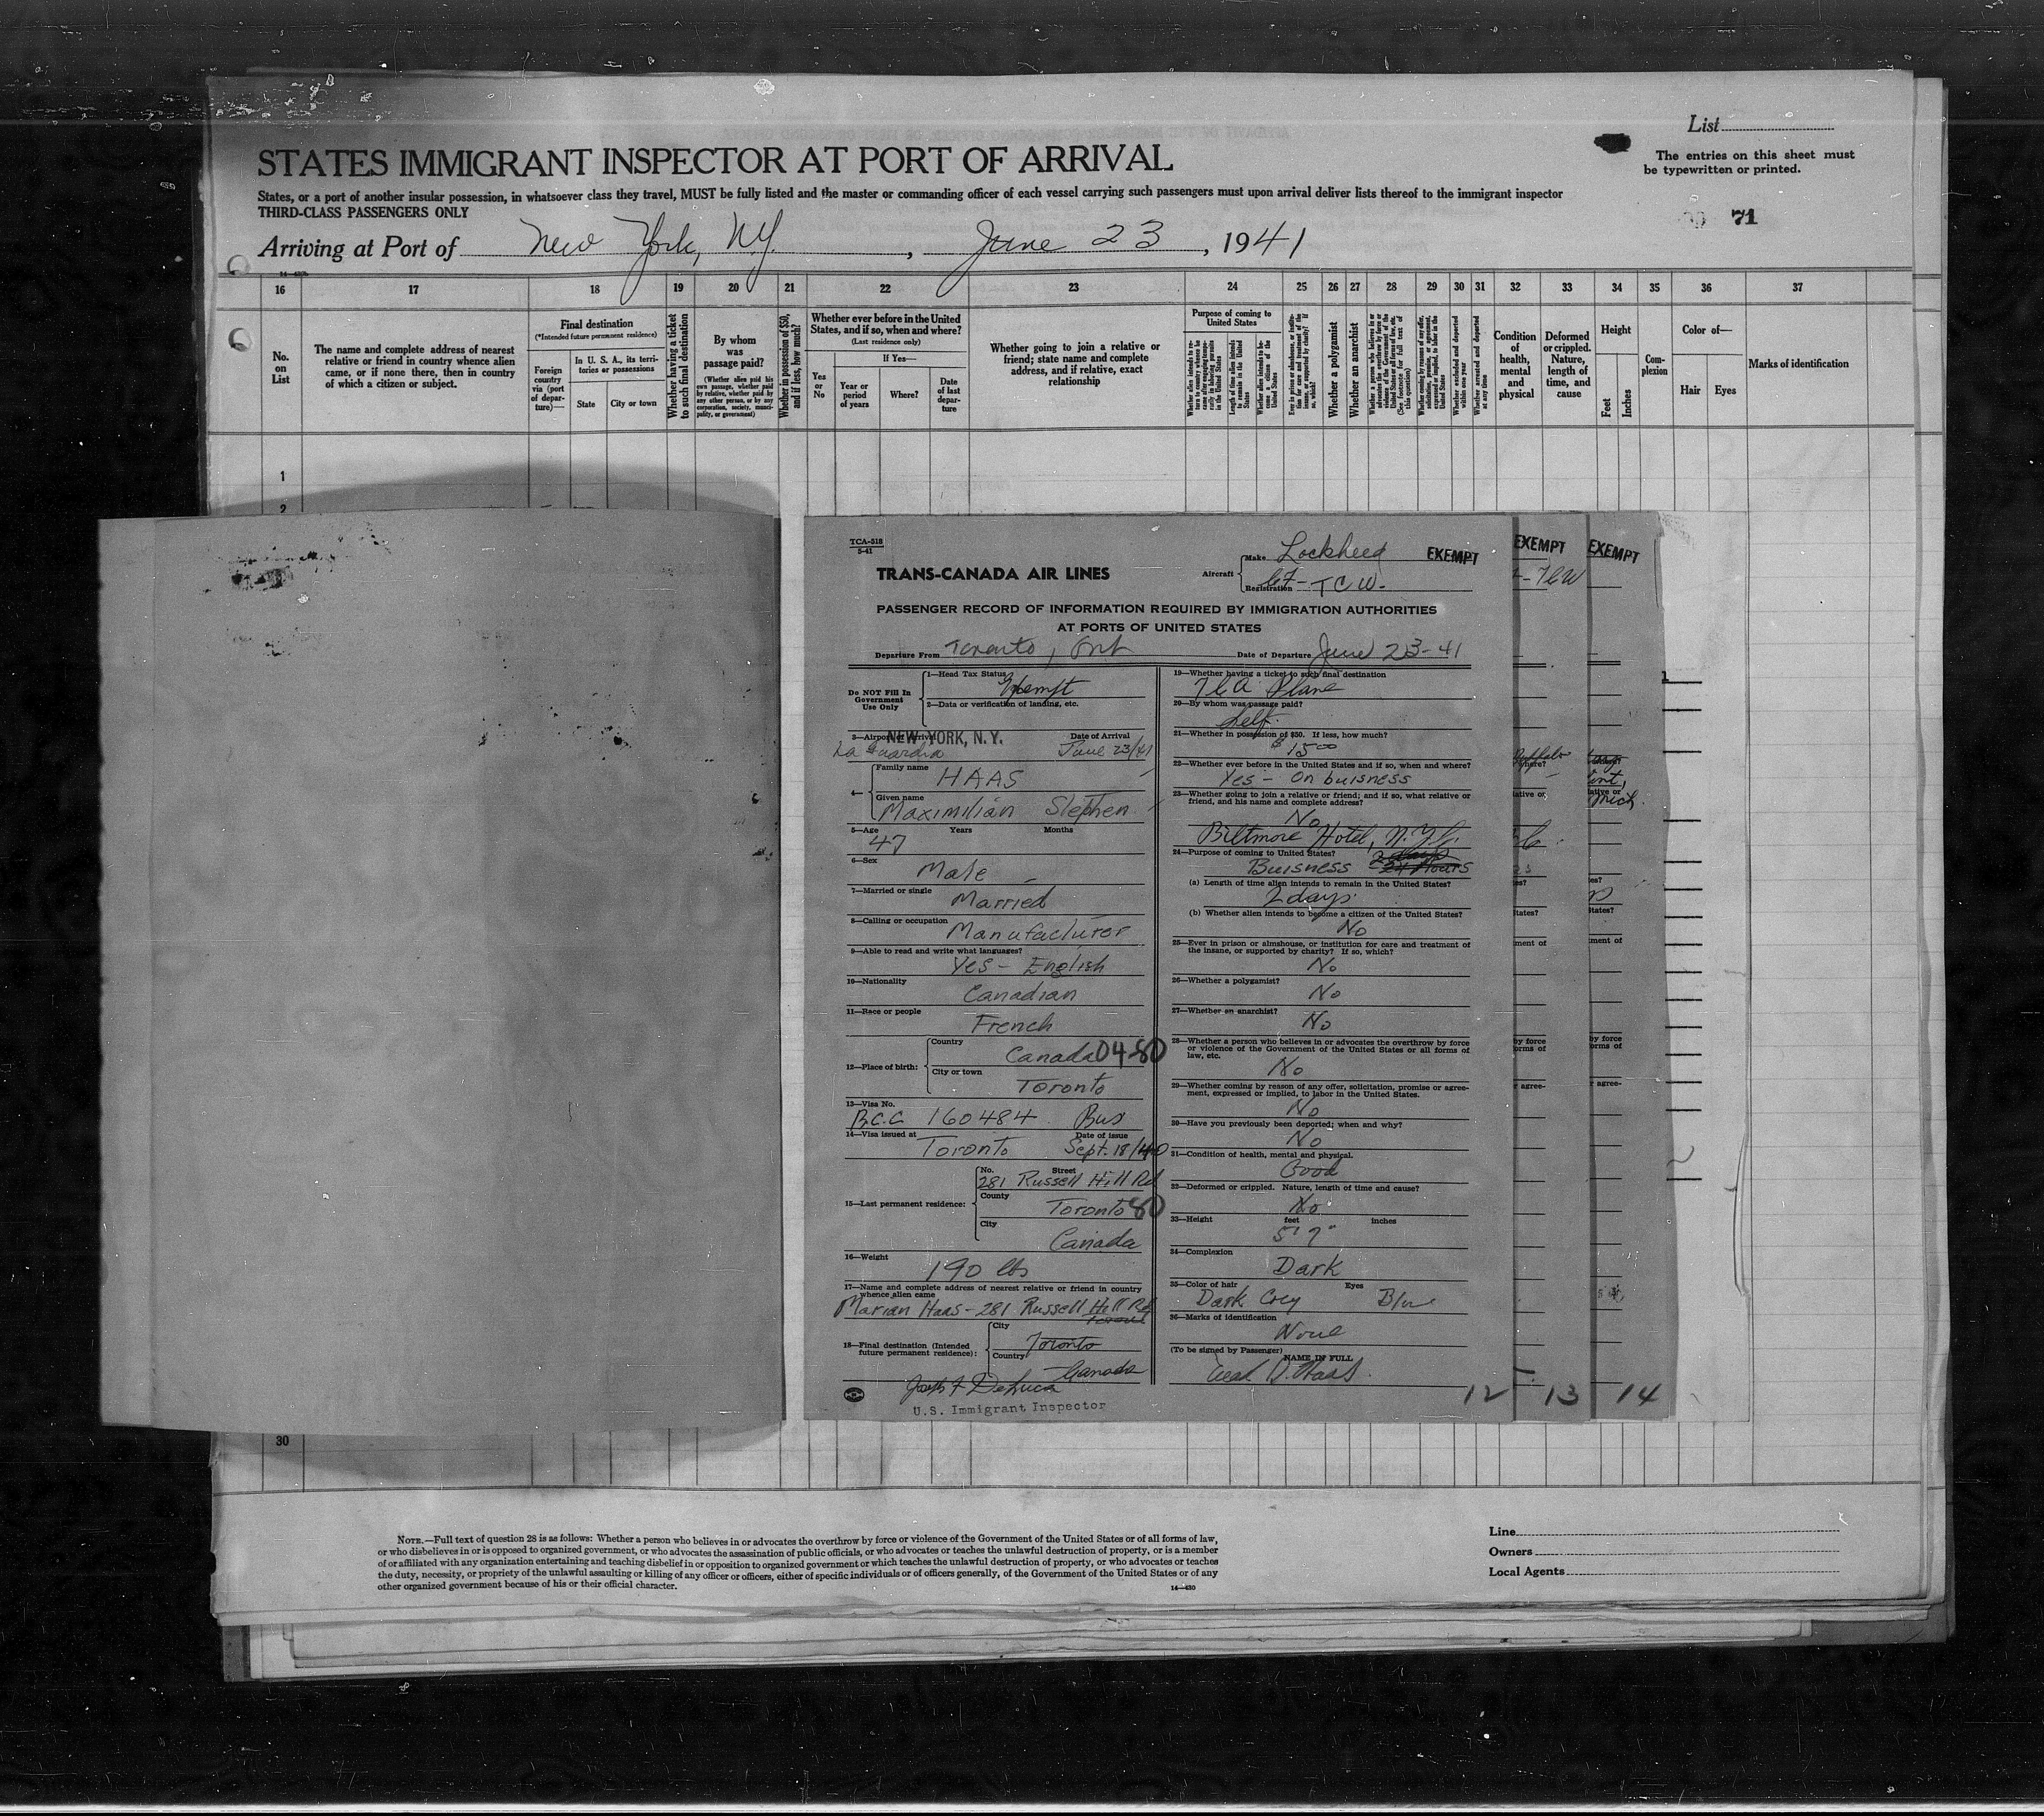 List
STATES IMMIGRANT INSPECTOR AT PORT OF ARRIVAL
The entries on this sheet must
be typewritten or printed.
States, or a port of another insular possession, in whatsoever class they travel, MUST be fully listed and the master or commanding officer of each vessel carrying such passengers must upon arrival deliver lists thereof to the immigrant inspector
THIRD-CLASS PASSENGERS ONLY
71
Arriving at Port of New York, N.Y., June 23, 1941
16 17 18 19 20 21 22 23 24 25 26 27 28 29 30 31 32 33 34 35 36 37
No. on List
The name and complete address of nearest relative or friend in country whence alien came, or if none there, then in country of which a citizen or subject.
Final destination
(*Intended future permanent residence)
Foreign country via (port of departure)—
In U. S. A., its territories or possessions
State
City or town
Whether having a ticket to such final destination
By whom was passage paid?
(Whether alien paid his own passage, whether paid by relative, whether paid by any other person, or by any corporation, society, municipality, or government)
Whether in possession of $50, and if less, how much?
Whether ever before in the United States, and if so, when and where?
(Last residence only)
Yes or No
If Yes—
Year or period of years
Where?
Date of last departure
Whether going to join a relative or friend; state name and complete address, and if relative, exact relationship
Purpose of coming to United States
Length of time alien intends to remain in the United States
Whether alien intends to become a citizen of the United States
Whether a polygamist
Whether an anarchist
Whether excluded and deported within one year
Whether arrested and deported at any time
Condition of health, mental and physical
Deformed or crippled. Nature, length of time, and cause
Height
Feet
Inches
Complexion
Color of—
Hair
Eyes
Marks of identification
1
2
TCA-518
5-41
TRANS-CANADA AIR LINES
Aircraft
Make Lockheed
Registration CF-TCW.
EXEMPT
EXEMPT
EXEMPT
PASSENGER RECORD OF INFORMATION REQUIRED BY IMMIGRATION AUTHORITIES
AT PORTS OF UNITED STATES
Departure From Toronto, Ont
Date of Departure June 23-41
Do NOT Fill In
Government
Use Only
1—Head Tax Status Exempt
2—Data or verification of landing, etc.
3—Airport of Arrival NEW YORK, N.Y.
La Guardia
Date of Arrival June 23/41
4— Family name HAAS
Given name Maximilian Stephen
5—Age 47 Years Months
6—Sex Male
7—Married or single Married
8—Calling or occupation Manufacturer
9—Able to read and write what languages? Yes - English
10—Nationality Canadian
11—Race or people French
12—Place of birth: Country Canada 04-80
City or town Toronto
13—Visa No. B.C.C 160484 Bus
14—Visa issued at Toronto Date of issue Sept. 18/40
15—Last permanent residence: No. Street 281 Russell Hill Rd
County Toronto 80
City Canada
16—Weight 190 lbs
17—Name and complete address of nearest relative or friend in country
whence alien came
Marian Haas - 281 Russell Hill Rd
18—Final destination (Intended
future permanent residence): City Toronto
Country Canada
U.S. Immigrant Inspector
19—Whether having a ticket to such final destination
TCA Plane
20—By whom was passage paid?
Self.
21—Whether in possession of $50. If less, how much?
$ 15 00
22—Whether ever before in the United States and if so, when and where?
Yes - On buisness
23—Whether going to join a relative or friend; and if so, what relative or
friend, and his name and complete address?
No
Biltmore Hotel, N.Y.C.
24—Purpose of coming to United States?
Buisness 2 days 24 Hours
(a) Length of time alien intends to remain in the United States?
2 days.
(b) Whether alien intends to become a citizen of the United States?
No
25—Ever in prison or almshouse, or institution for care and treatment of
the insane, or supported by charity? If so, which?
No
26—Whether a polygamist?
No
27—Whether an anarchist?
No
28—Whether a person who believes in or advocates the overthrow by force
or violence of the Government of the United States or all forms of
law, etc.
No
29—Whether coming by reason of any offer, solicitation, promise or agreement, expressed or implied, to labor in the United States.
No
30—Have you previously been deported; when and why?
No
31—Condition of health, mental and physical.
Good
32—Deformed or crippled. Nature, length of time and cause?
No
33—Height feet inches
5' 7"
34—Complexion
Dark
35—Color of hair Eyes
Dark Grey Blue
36—Marks of identification
None
(To be signed by Passenger) NAME IN FULL
12 13 14
30
NOTE.—Full text of question 28 is as follows: Whether a person who believes in or advocates the overthrow by force or violence of the Government of the United States or of all forms of law,
or who disbelieves in or is opposed to organized government, or who advocates the assassination of public officials, or who advocates or teaches the unlawful destruction of property, or is a member
of or affiliated with any organization entertaining and teaching disbelief in or opposition to organized government or which teaches the unlawful destruction of property, or who advocates or teaches
the duty, necessity, or propriety of the unlawful assaulting or killing of any officer or officers, either of specific individuals or of officers generally, of the Government of the United States or of any
other organized government because of his or their official character.
14—430
Line
Owners
Local Agents